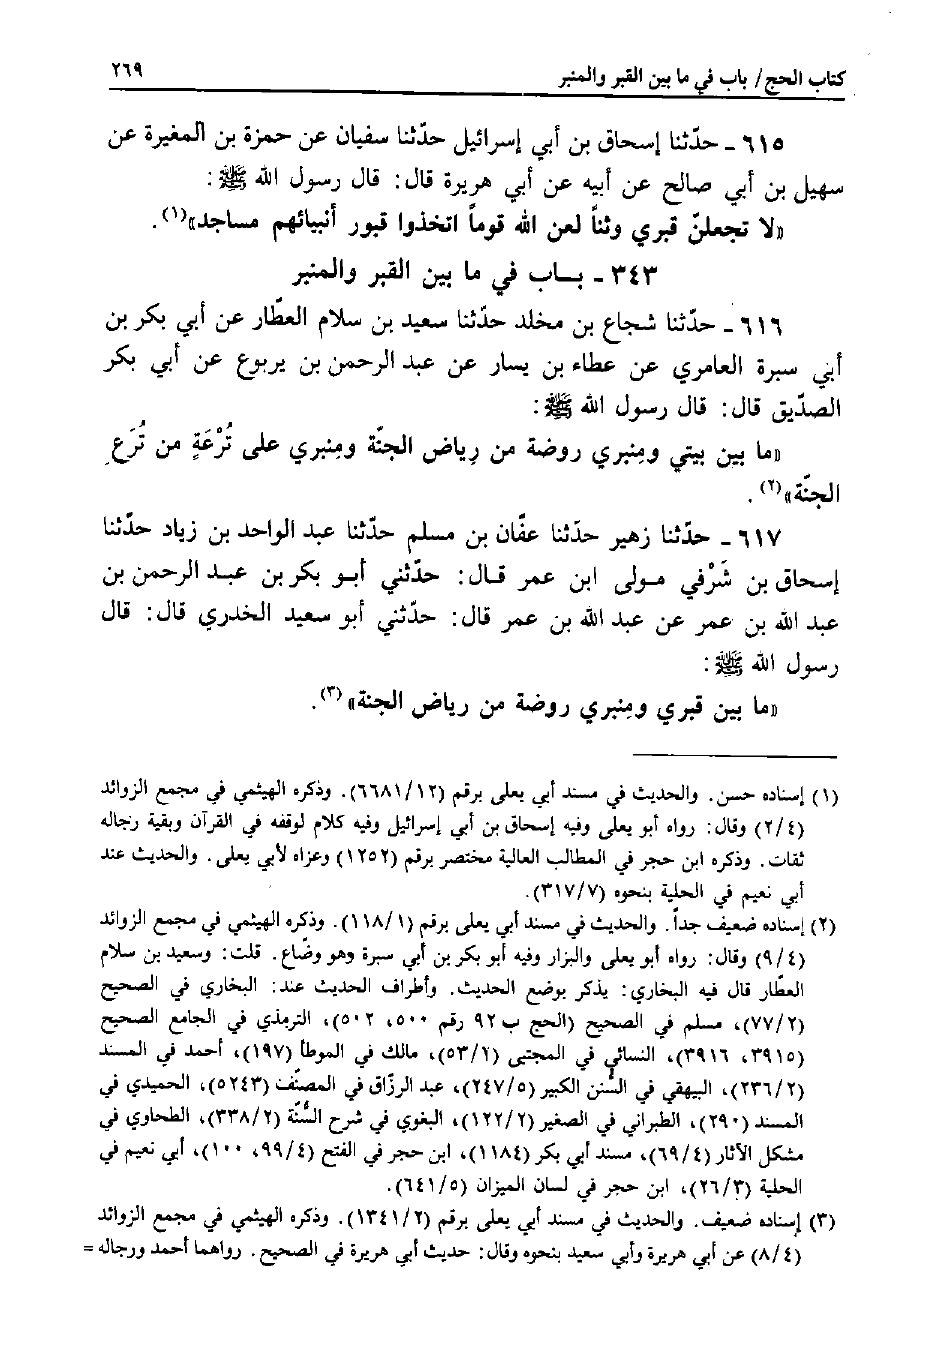 كتاب الحج/ باب في ما بين القبر والمنبر ٢٦٩
٦١٥ ـ حدّثنا إسحاق بن أبي إسرائيل حدّثنا سفيان عن حمزة بن المغيرة عن
سهيل بن أبي صالح عن أبيه عن أبي هريرة قال: قال رسول الله ﷺ:
«لا تجعلنّ قبري وثناً لعن الله قوماً اتخذوا قبور أنبيائهم مساجد»(١).
٣٤٣ ـ بـاب في ما بين القبر والمنبر
٦١٦ ـ حدّثنا شجاع بن مخلد حدّثنا سعيد بن سلام العطّار عن أبي بكر بن
أبي سبرة العامري عن عطاء بن يسار عن عبد الرحمن بن يربوع عن أبي بكر
الصدّيق قال: قال رسول الله ﷺ:
«ما بين بيتي ومِنبري روضة من رِياض الجنّة ومِنبري على تُرْعَةٍ من تُرَعِ
الجنّة»(٢).
٦١٧ ـ حدّثنا زهير حدّثنا عفّان بن مسلم حدّثنا عبد الواحد بن زياد حدّثنا
إسحاق بن شَرْفي مـولى ابن عمر قـال: حدّثني أبـو بكر بن عبـد الرحمن بن
عبد الله بن عمر عن عبد الله بن عمر قال: حدّثني أبو سعيد الخدري قال: قال
رسول الله ﷺ:
«ما بين قبري ومِنبري روضة من رياض الجنة»(٣).
(١) إسناده حسن. والحديث في مسند أبي يعلى برقم (٦٦٨١/١٢). وذكره الهيثمي في مجمع الزوائد
(٢/٤) وقال: رواه أبو يعلى وفيه إسحاق بن أبي إسرائيل وفيه كلام لوقفه في القرآن وبقية رجاله
ثقات. وذكره ابن حجر في المطالب العالية مختصر برقم (١٢٥٢) وعزاه لأبي يعلى. والحديث عند
أبي نعيم في الحلية بنحوه (٣١٧/٧).
(٢) إسناده ضعيف جداً. والحديث في مسند أبي يعلى برقم (١١٨/١). وذكره الهيثمي في مجمع الزوائد
(٩/٤) وقال: رواه أبو يعلى والبزار وفيه أبو بكر بن أبي سبرة وهو وضّاع. قلت: وسعيد بن سلام
العطّار قال فيه البخاري: يذكر بوضع الحديث. وأطراف الحديث عند: البخاري في الصحيح
(٧٧/٢)، مسلم في الصحيح (الحج ب ٩٢ رقم ٥٠٠، ٥٠٢)، الترمذي في الجامع الصحيح
(٣٩١٥، ٣٩١٦)، النسائي في المجتبى (٥٣/٢)، مالك في الموطأ (١٩٧)، أحمد في المسند
(٢٣٦/٢)، البيهقي في السُّنن الكبير (٢٤٧/٥)، عبد الرزّاق في المصنّف (٥٢٤٣)، الحميدي في
المسند (٢٩٠)، الطبراني في الصغير (١٢٢/٢)، البغوي في شرح السُّنّة (٣٣٨/٢)، الطحاوي في
مشكل الآثار (٦٩/٤)، مسند أبي بكر (١١٨٤)، ابن حجر في الفتح (٩٩/٤، ١٠٠)، أبي نعيم في
الحلية (٢٦/٣)، ابن حجر في لسان الميزان (٦٤١/٥).
(٣) إسناده ضعيف. والحديث في مسند أبي يعلى برقم (١٣٤١/٢). وذكره الهيثمي في مجمع الزوائد
(٨/٤) عن أبي هريرة وأبي سعيد بنحوه وقال: حديث أبي هريرة في الصحيح. رواهما أحمد ورجاله =